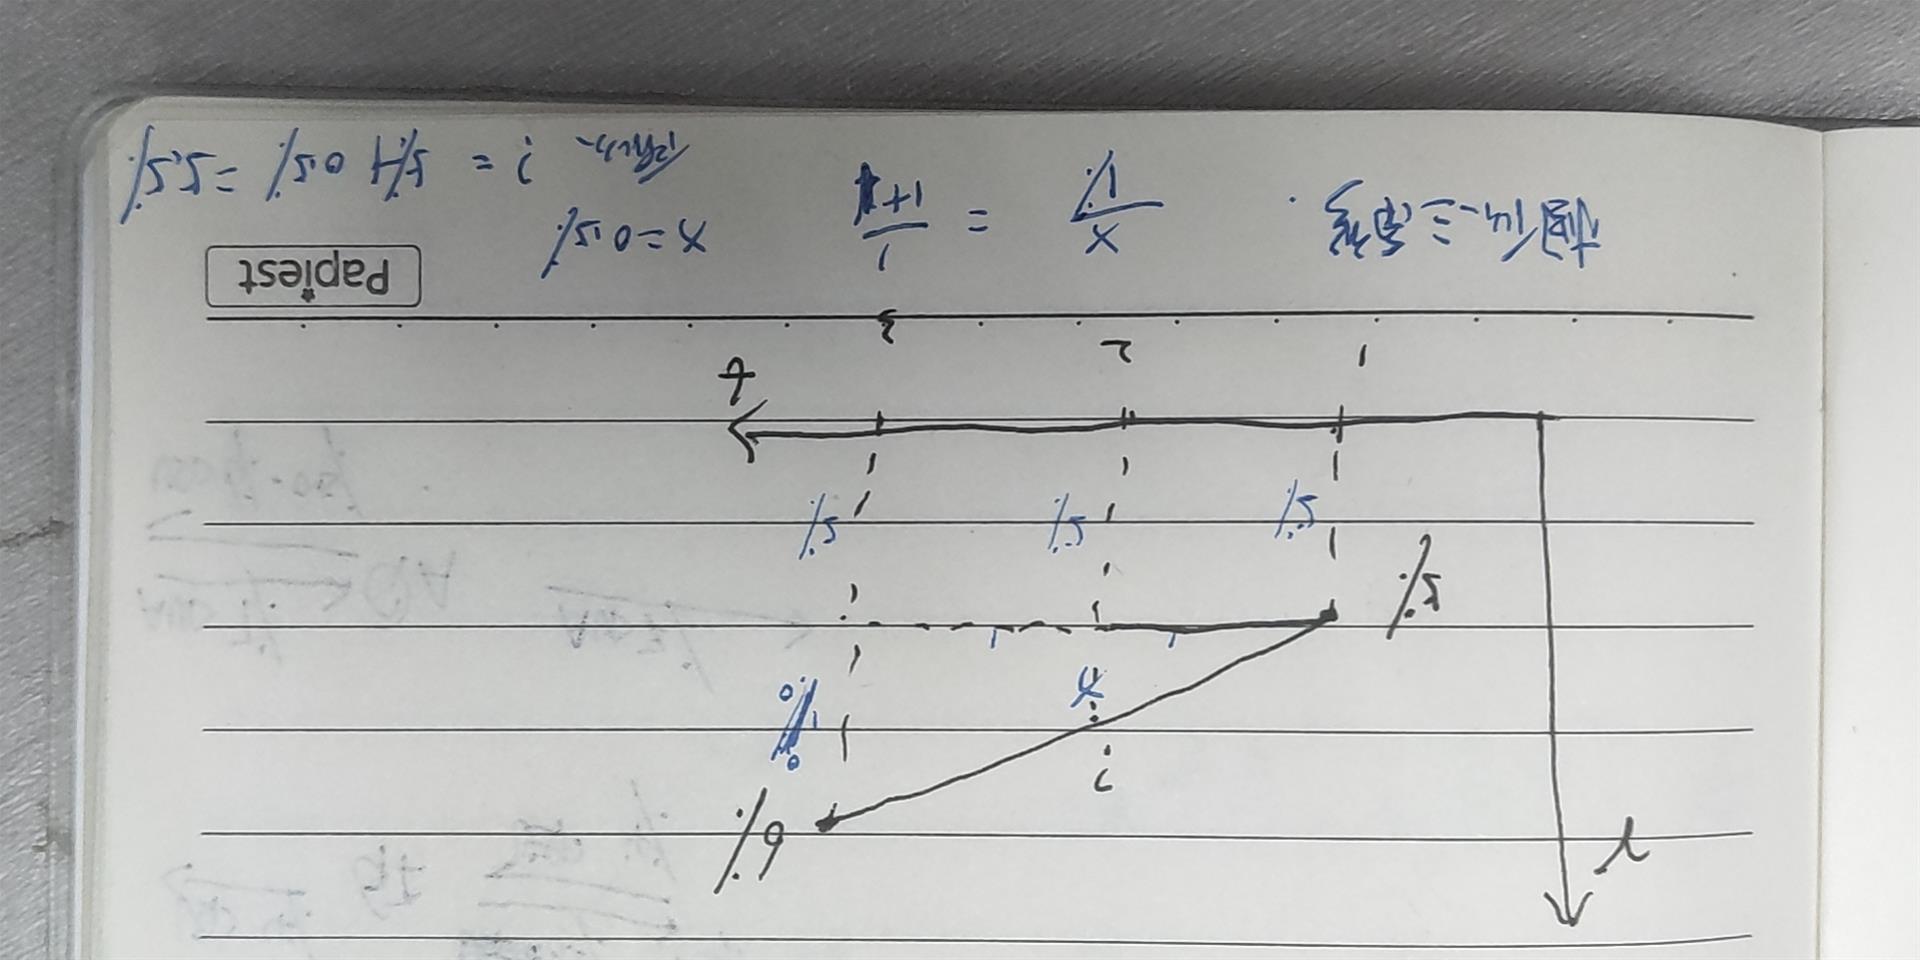 r
6%
?
1%
x
1 1
5%
5% 5% 5%
t
1 2 3
Papiest
相似三角形. x/1% = 1/1+1
x=0.5%
所以 ? = 5%+0.5% =5.5%